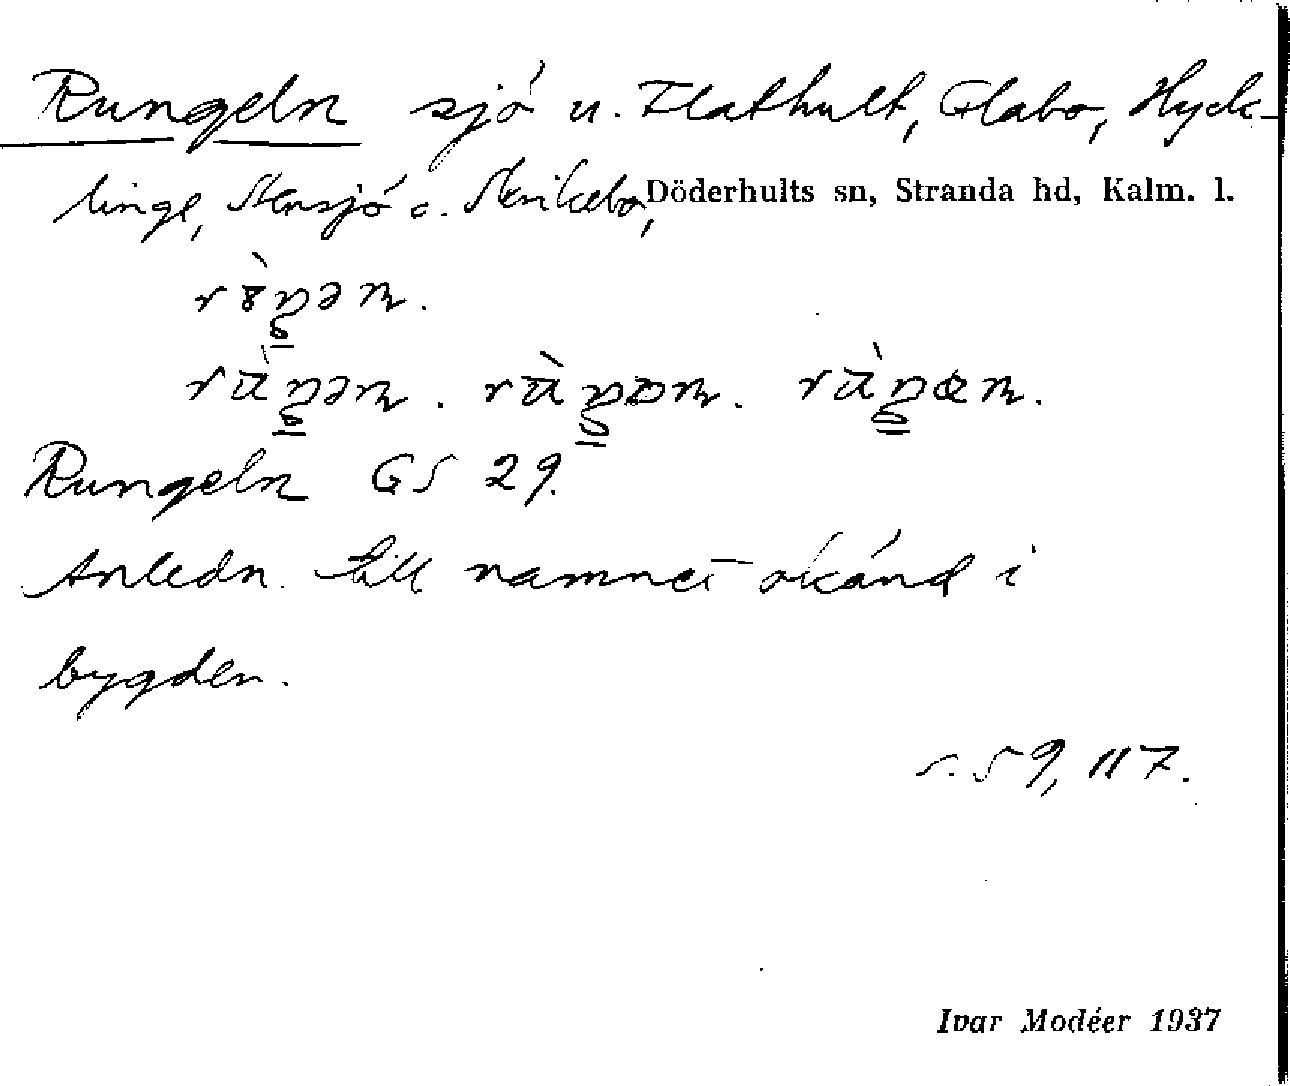 Rungeln sjö u. Flathult, Glabo, Hyck-
linge, Stensjö o. Skrikebo, Döderhults sn, Stranda hd, Kalm. l.
Rungeln GS 29.
Anledn. till namnet okänd i
bygden.
s. 59, 117.
Ivar Modéer 1937